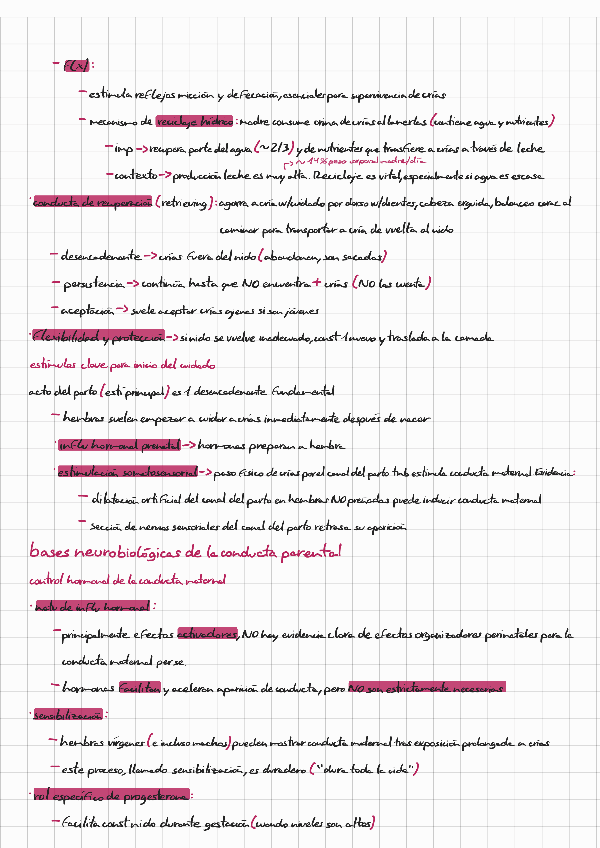 - F(x):
- estimula reflejos micción y defecación, esenciales para supervivencia de crías
- mecanismo de reciclaje hídrico: madre consume orina de crías al lamerlas (contiene agua y nutrientes)
- imp -> recupera parte del agua (~2/3) y de nutrientes que transfiere a crías a través de leche
-> ~14% peso corporal madre/día
- contexto -> producción leche es muy alta. Reciclaje es vital, especialmente si agua es escasa
· conducta de recuperación (retrieving): agarra a cría w/cuidado por dorso w/dientes, cabeza erguida, balanceo corporal
caminar para transportar a cría de vuelta al nido
- desencadenante -> crías fuera del nido (abandonan, son sacadas)
- persistencia -> continúa hasta que NO encuentra + crías (NO las cuenta)
- aceptación -> suele aceptar crías ajenas si son jóvenes
· Flexibilidad y protección -> si nido se vuelve inadecuado, const 1 nuevo y traslada a la camada
estímulos clave para inicio del cuidado
acto del parto (estí principal) es 1 desencadenante fundamental
- hembras suelen empezar a cuidar a crías inmediatamente después de nacer
influ hormonal prenatal -> hormonas preparan a hembra
estimulación somatosensorial -> paso físico de crías por el canal del parto tmb estimula conducta maternal. Evidencia:
- dilatación artificial del canal del parto en hembras NO preñadas puede inducir conducta maternal
- sección de nervios sensoriales del canal del parto retrasa su aparición
bases neurobiológicas de la conducta parental
control hormonal de la conducta maternal
· natu de influ hormonal:
- principalmente efectos activadores, NO hay evidencia clara de efectos organizadores perinatales para la
conducta maternal per se.
- hormonas facilitan y aceleran aparición de conducta, pero NO son estrictamente necesarias
· sensibilización:
- hembras vírgenes (e incluso machos) pueden mostrar conducta maternal tras exposición prolongada a crías
- este proceso, llamado sensibilización, es duradero ("dura toda la vida")
· rol específico de progesterona:
- Facilita const nido durante gestación (cuando niveles son altos)